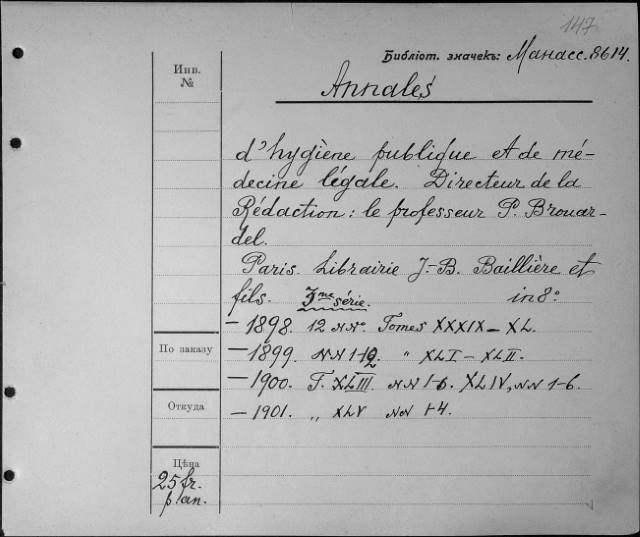 147
Библіот. значекъ: Манасс. 8614.
Инв.
№
Annales
d'hygiène publique et de mé-
decine légale. Directeur de la
Rédaction: le professeur P. Brouar-
del.
Paris. Librairie J.-B. Baillière et
fils. 3me série. in 8°
— 1898. 12 NN°. Tomes XXXIX – XL.
По заказу
— 1899. NN 1-12 " XLI – XLII.
— 1900. T. XLIII. NN 1-6. XLIV, NN 1-6.
Откуда
— 1901. „ XLV NN 1-4.
Цѣна
25 fr.
p. an.